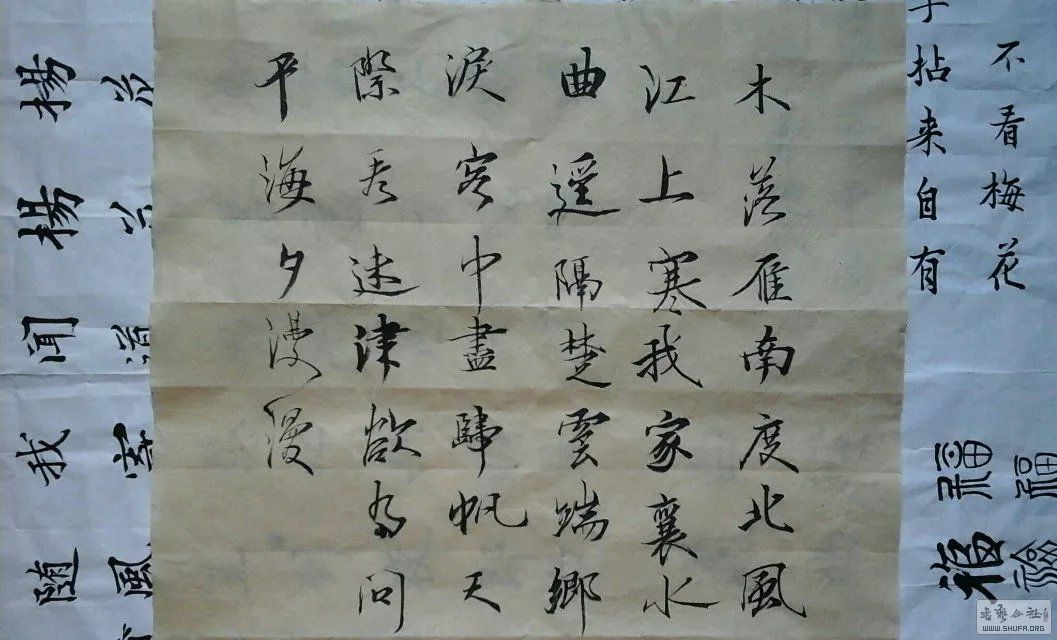 不看梅花
拈来自有
福福
福
木落雁南度北風
江上寒我家襄水
曲遥隔楚雲端鄉
淚客中盡歸帆天
際看迷津欲有問
平海夕漫漫
道寄風
楊楊聞我随
书艺公社
WWW.SHUFA.ORG